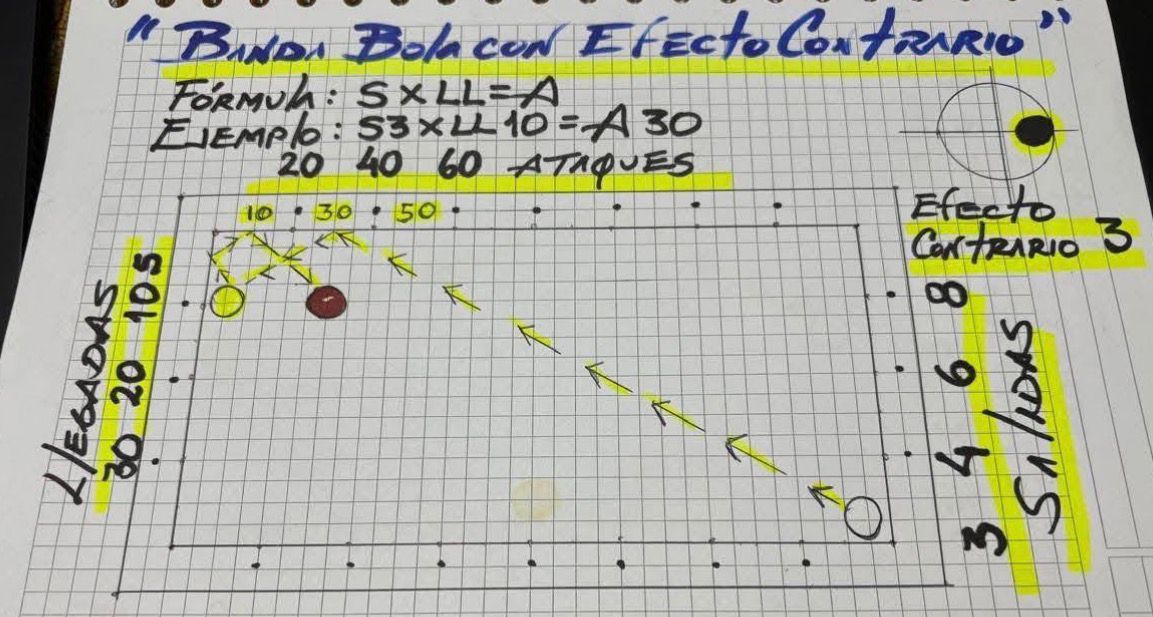 "BANDA BOLA CON EFECTO CONTRARIO"
FÓRMULA: S X LL = A
EJEMPLO: S3 X LL 10 = A 30
20 40 60 ATAQUES
10 30 50
EFECTO
CONTRARIO 3
LLEGADAS
30 20 10 5
8 6 4 3
SALIDAS